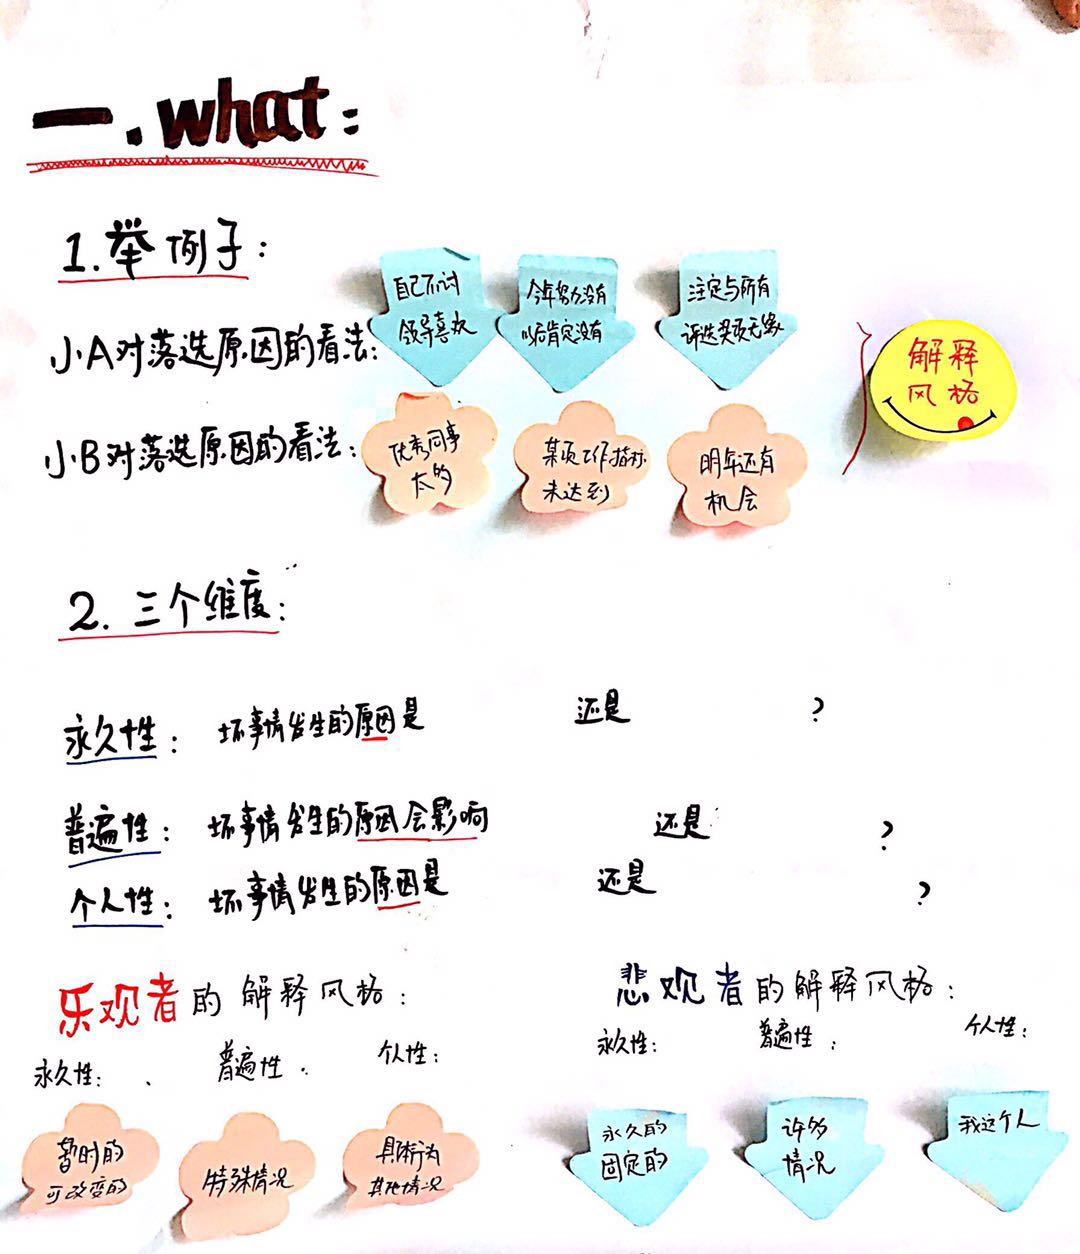 一.what:
1.举例子:
小A对落选原因的看法:
自己不讨
领导喜欢
今年努力没有
以后肯定没有
注定与所有
评选奖项无缘
小B对落选原因的看法:
优秀同事
太多
某项工作指标
未达到
明年还有
机会
解释
风格
2. 三个维度:
永久性: 坏事情发生的原因是 还是 ?
普遍性: 坏事情发生的原因会影响 还是 ?
个人性: 坏事情发生的原因是 还是 ?
乐观者的解释风格:
永久性: 普遍性: 个人性:
暂时的
可改变的
特殊情况
具体行为
其他情况
悲观者的解释风格:
永久性: 普遍性: 个人性:
永久的
固定的
许多
情况
我这个人